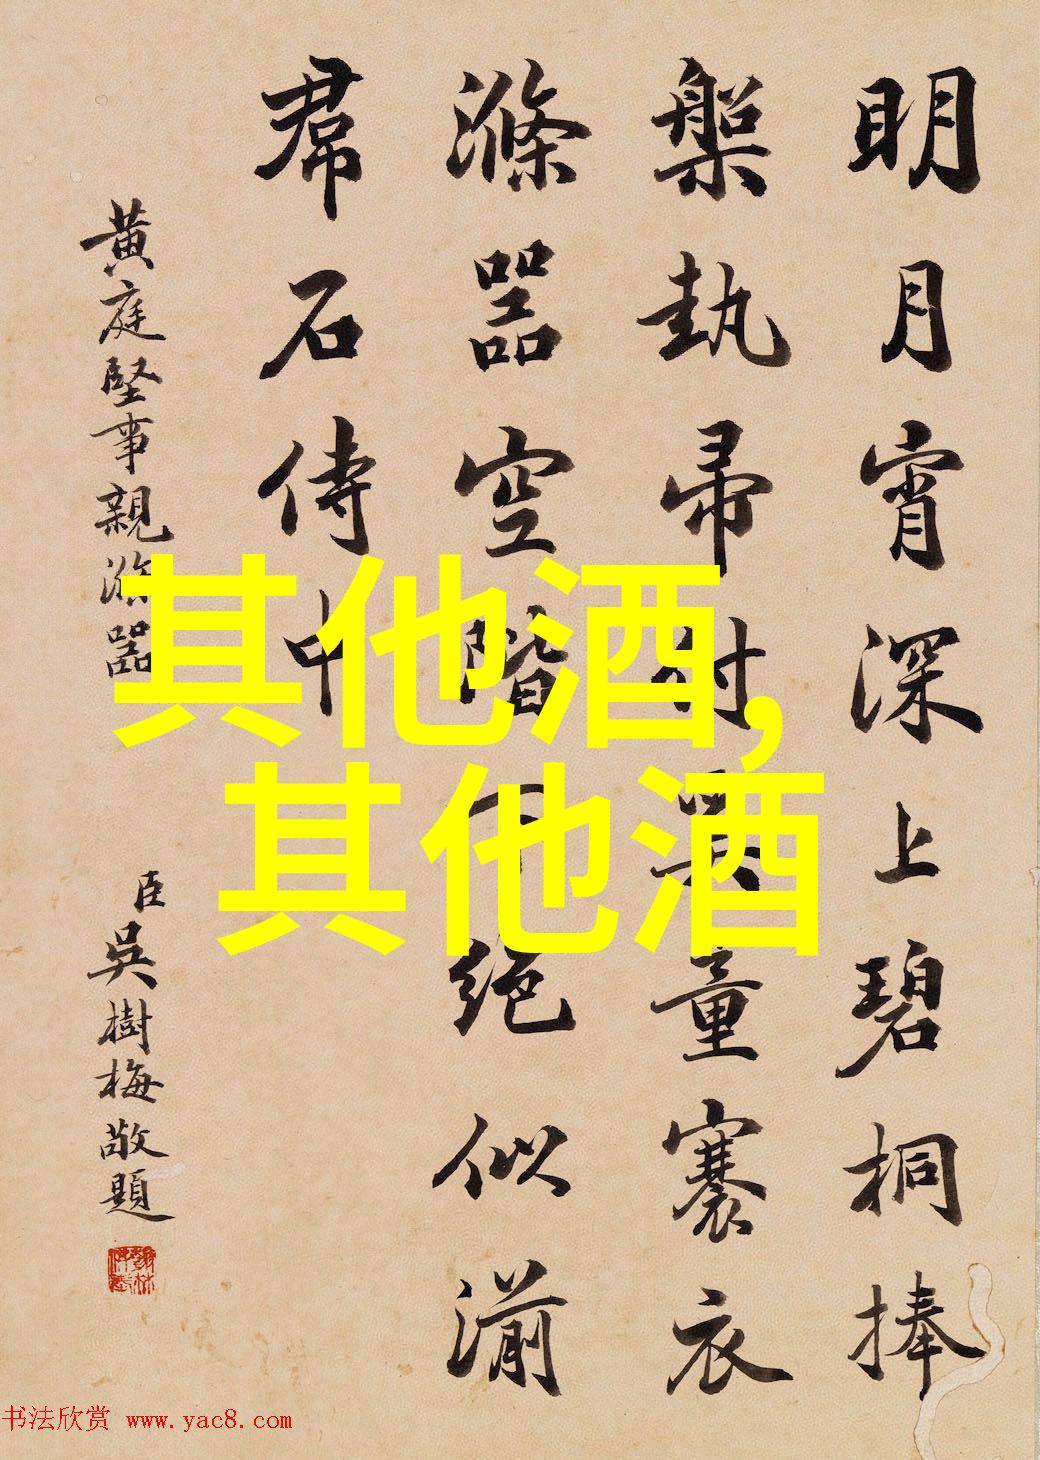 明月宵深上碧桐捧
槃執帚付奚童褰衣
滌器空階下絕似湔
帬石侍中
黃庭堅事親滌器
臣吳樹梅敬題
其他酒,
其他酒
书法欣赏 www.yac8.com